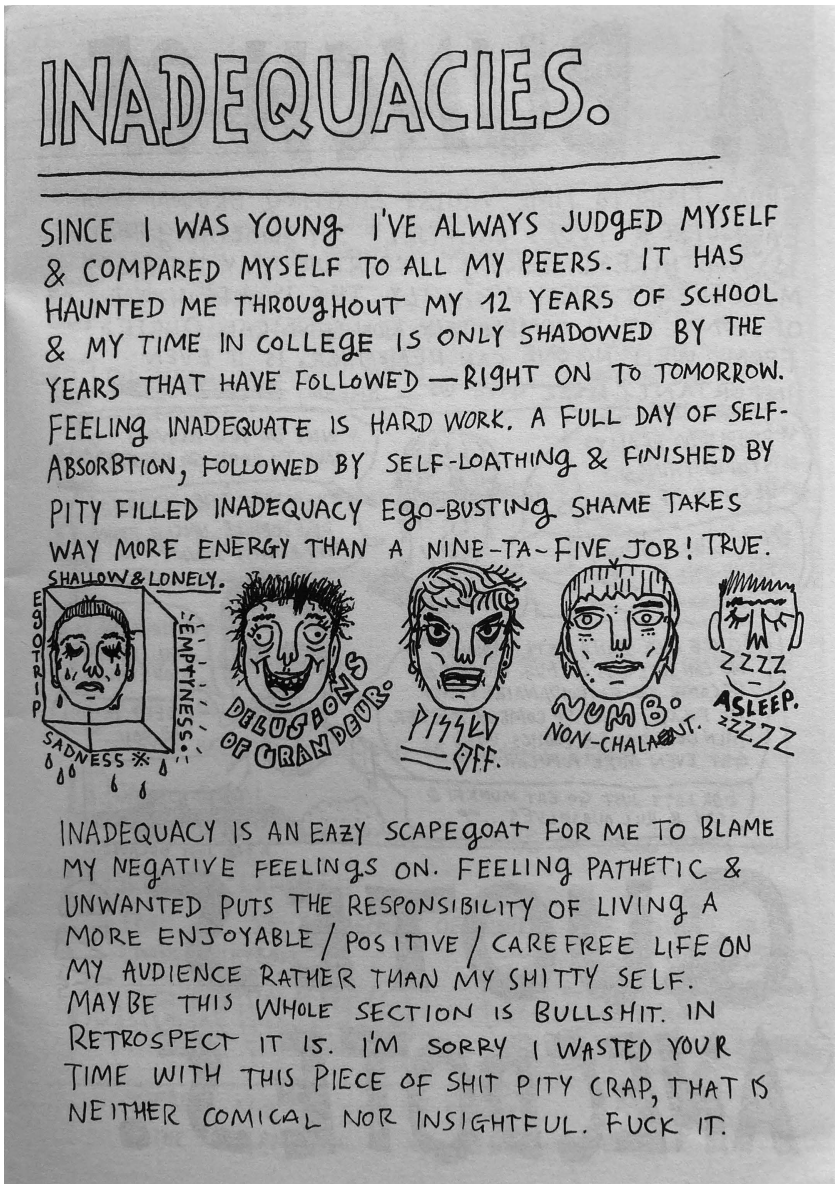 INADEQUACIES.
SINCE I WAS YOUNG I'VE ALWAYS JUDGED MYSELF
& COMPARED MYSELF TO ALL MY PEERS. IT HAS
HAUNTED ME THROUGHOUT MY 12 YEARS OF SCHOOL
& MY TIME IN COLLEGE IS ONLY SHADOWED BY THE
YEARS THAT HAVE FOLLOWED — RIGHT ON TO TOMORROW.
FEELING INADEQUATE IS HARD WORK. A FULL DAY OF SELF-
ABSORBTION, FOLLOWED BY SELF-LOATHING & FINISHED BY
PITY FILLED INADEQUACY EGO-BUSTING SHAME TAKES
WAY MORE ENERGY THAN A NINE-TA-FIVE JOB! TRUE.
SHALLOW & LONELY.
EGOTRIP
EMPTINESS.
SADNESS
DELUSIONS
OF GRANDEUR.
PISSED
OFF.
NUMB.
NON-CHALANT.
ZZZZ
ASLEEP.
ZZZZZ
INADEQUACY IS AN EAZY SCAPEGOAT FOR ME TO BLAME
MY NEGATIVE FEELINGS ON. FEELING PATHETIC &
UNWANTED PUTS THE RESPONSIBILITY OF LIVING A
MORE ENJOYABLE / POSITIVE / CAREFREE LIFE ON
MY AUDIENCE RATHER THAN MY SHITTY SELF.
MAYBE THIS WHOLE SECTION IS BULLSHIT. IN
RETROSPECT IT IS. I'M SORRY I WASTED YOUR
TIME WITH THIS PIECE OF SHIT PITY CRAP, THAT IS
NEITHER COMICAL NOR INSIGHTFUL. FUCK IT.